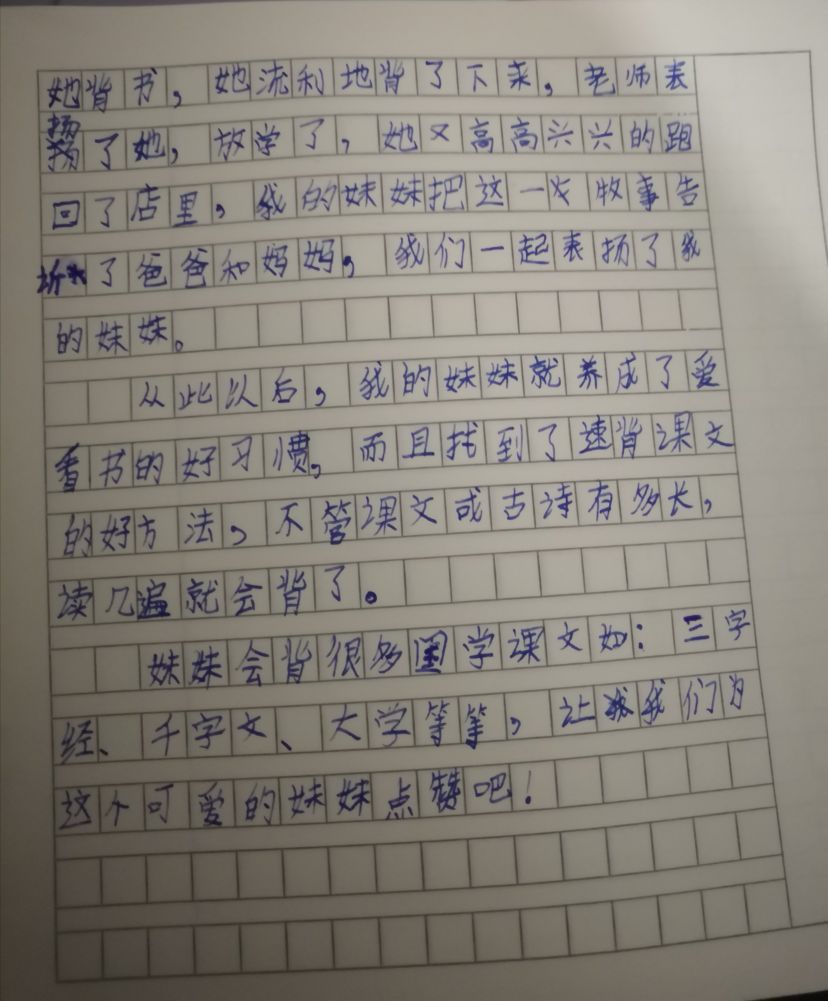 她背书，她流利地背了下来，老师表
扬了她，放学了，她又高高兴兴的跑
回了店里，我的妹妹把这一次牧事告
诉了爸爸和妈妈，我们一起表扬了我
的妹妹。
从此以后，我的妹妹就养成了爱
看书的好习惯，而且找到了速背课文
的好方法，不管课文或古诗有多长，
读几遍就会背了。
妹妹会背很多国学课文如：三字
经、千字文、大学等等，让我我们为
这个可爱的妹妹点赞吧！